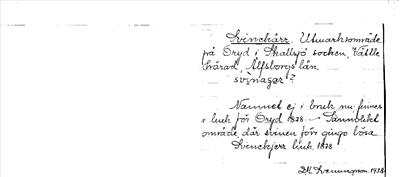 Svinekärr. Utmarksområde
på Öryd i Skallsjö socken, Vättle
härad, Älfsborgs län.
svinager?
Namnet ej i bruk nu finnes
i luk för Öryd 1878 – Sannolikt
område, där svinen förr gingo lösa
Svinekjerr luk. 1878
1938